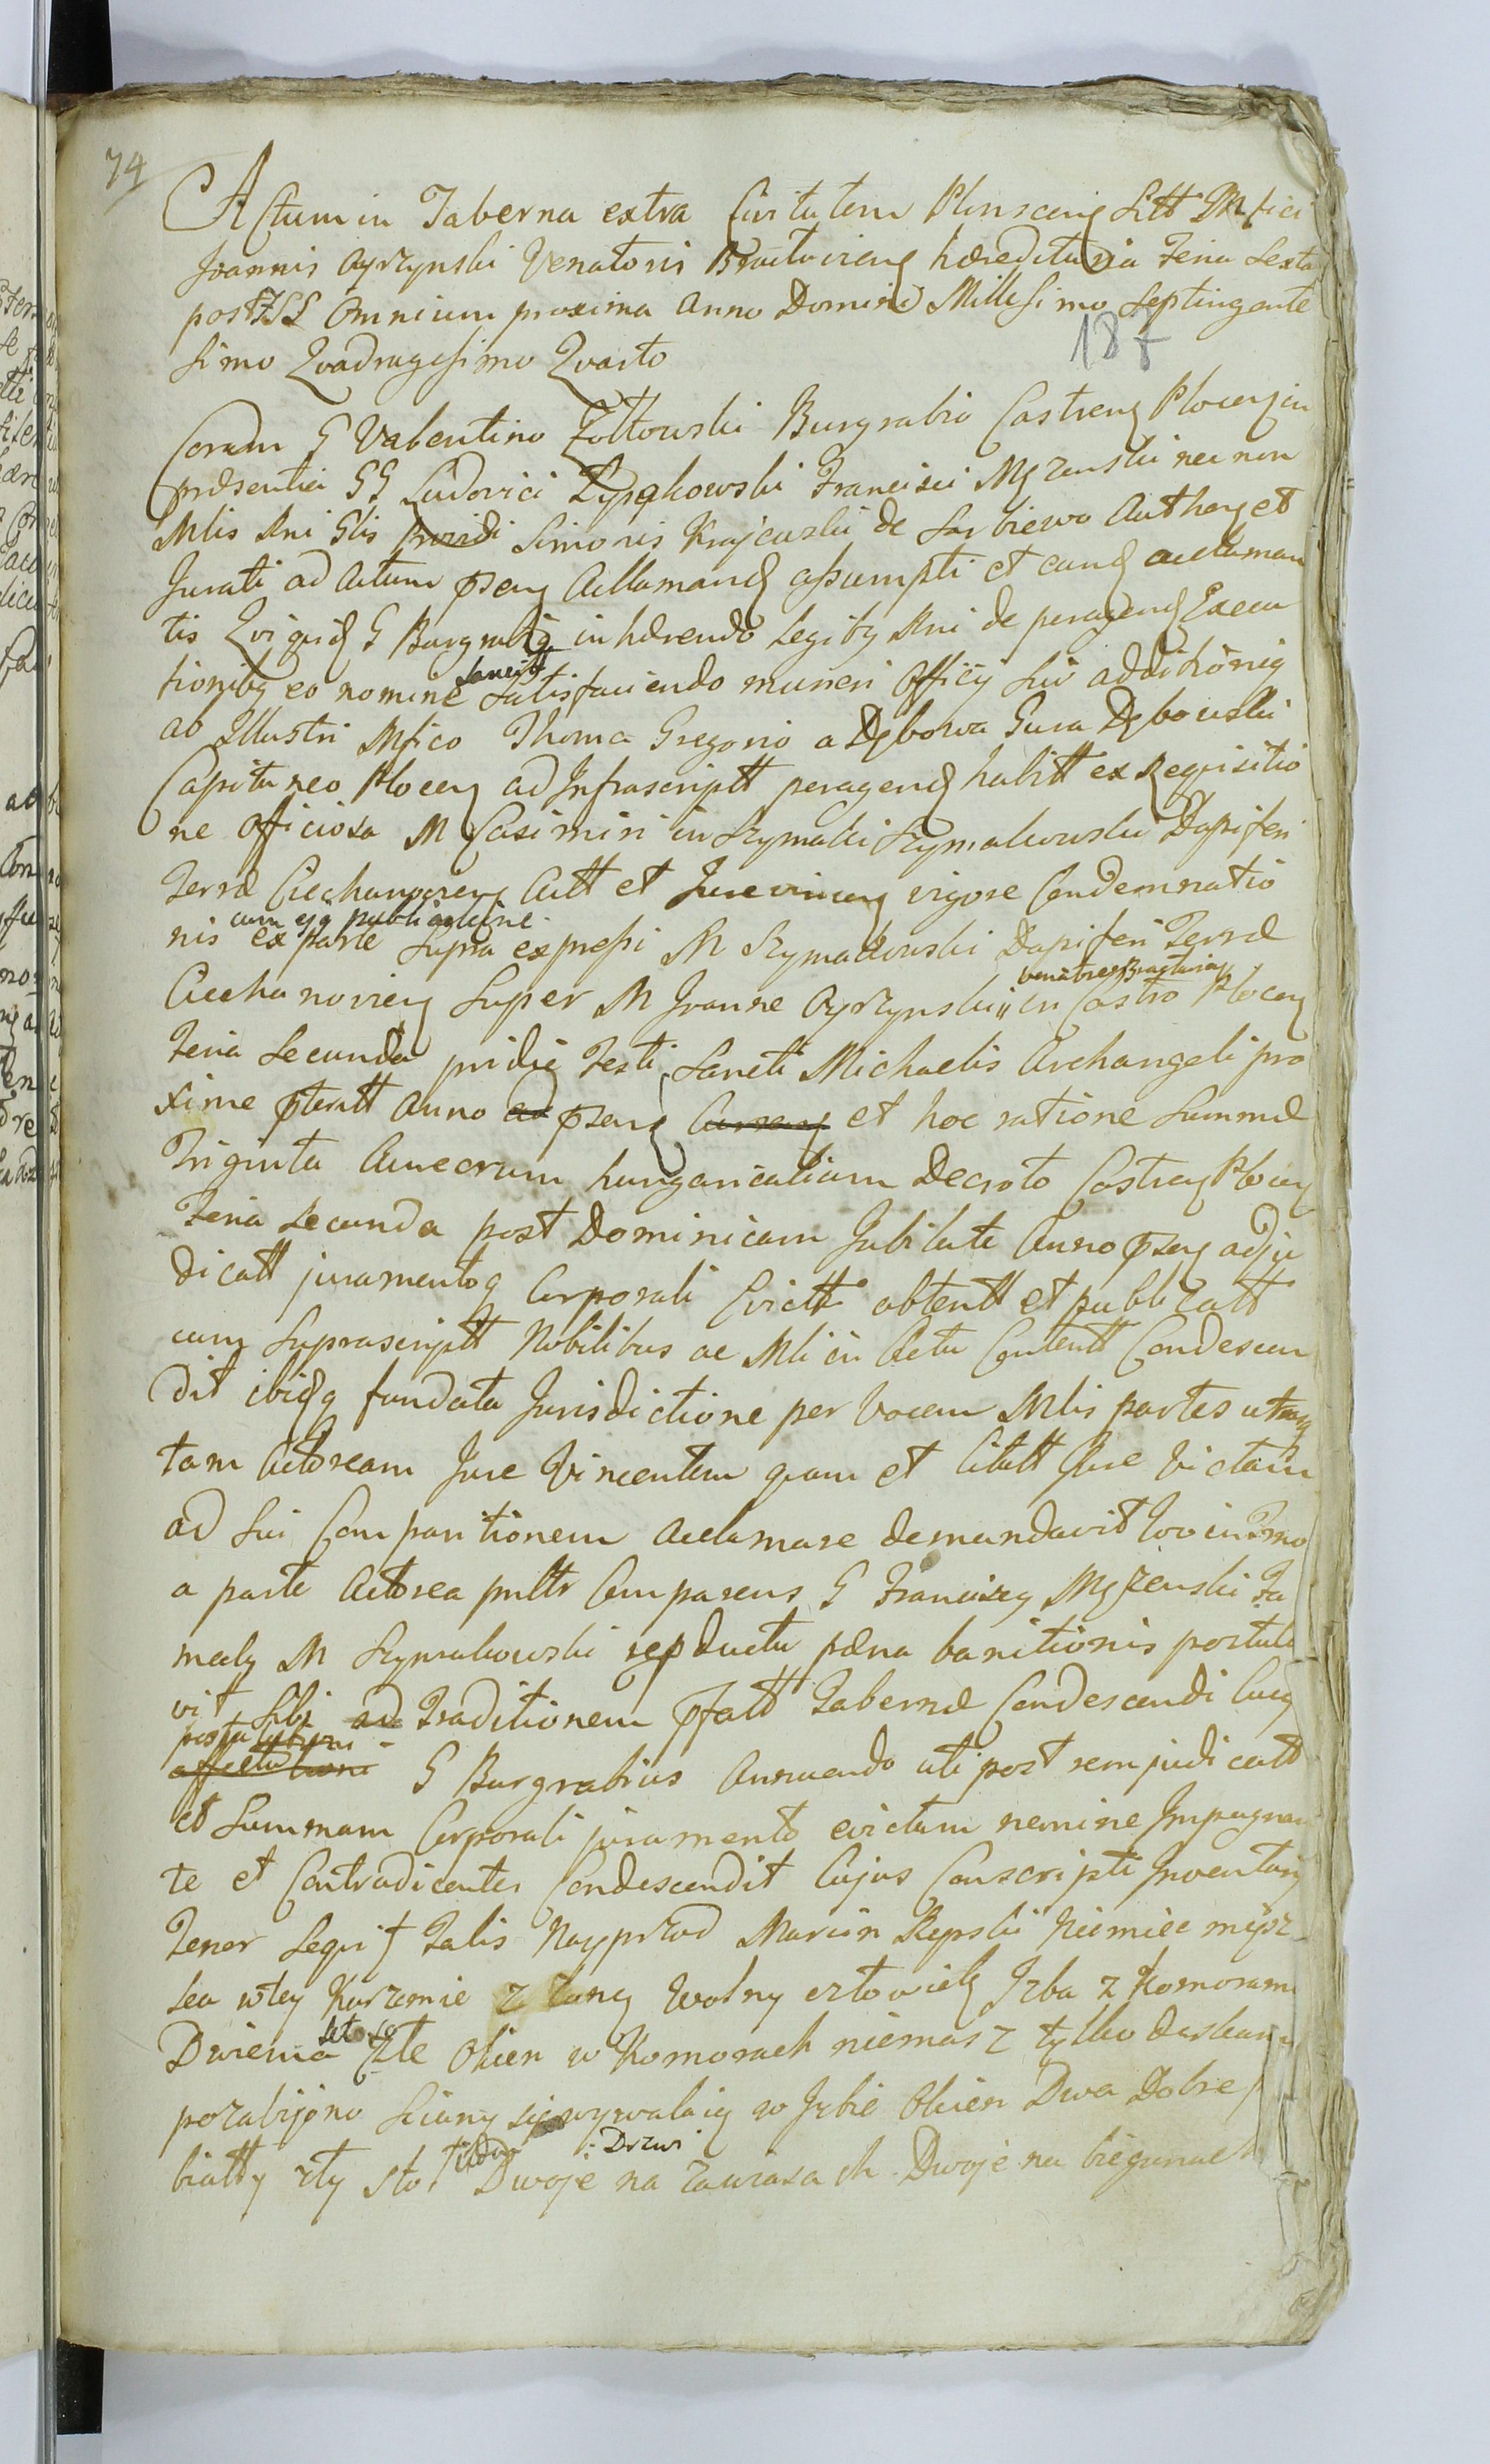 74
Actum in Taberna extra Civitatem Plonsceng Sitt Mfici
Joannis Ayrzynski Venatoris Braclavieng hæreditaria Feria Sexta
post F SS Omnium proxima Anno Domini Millesimo Septingente
simo Qvadragesimo Qvarto
187
Coram G Valentino Zołtowski Burgrabio Castreng Ploceng in
præsentia GG Ludovici Francisci Mgzewski nec non
Mlis Rni Glis Simonis Krajewski de Sarbiewo Autheng et
Jurati ad Actum pseng Acclamand assumpti et eund acclaman
tis Qviquid G Burgrabig inhærendo Legibg Rni de peragend Execu
tionibg eo nomine sancitt Satisfaciendo muneri Officij Sui
ab Illustri Mfico Thoma Gregorio a Dębowa Gura Dębowski
Capitaneo Ploceng ad Infrascriptt peragend habitt ex Reqvisitio
ne Officiosa M Casimiri in Szymaki Szymakowski Dapiferi
Terræ Ciechanovieng Actt et Jurevinceng vigore Condemnatio
nis cum ejg publicatione ex parte Supra expressi M Szymakowski Dapiferi Terræ
Ciechanovieng Super M Joanne Ayrzynski venatore Braclavieng in Castro Ploceng
Feria Secunda pridie Festi Sancti Michaelis Archangeli pro
xime pteritt Anno ad pseng Curreng et hoc ratione Summæ
Triginta Aureorum hungaricalium Decreto Castreng Ploceng
Feria Secunda post Dominicam Jubilate Anno pseng adju
dicatt juramentoq Corporali Evictt obtentt et publicatt
cum Suprascriptt Nobilibus ac Mli in Actu Contentt Condescen
dit ibidq fundata Jurisdictione per Vocem Mlis partes utrasq
tam Actoream Jure Vincentem quam et Citatt Jure Victam
ad Sui Comparitionem Acclamare demandavit
a parte Actorea Comparens G Franciszg Mgzewski Fa
mulg M Szymakowski pæna banitionis postula
vit Sibi ad Traditionem pfatt Tabernæ Condescendi Cuig
postulationi affectationi G Burgrabius Annuendo uti post rem judicatt
et Summam Corporali juramento evictam nemine Impugnan
te et Contradicente Condescendit Cujus Conscripti Inventarij
Tenor Seqvit Talis Nayprzod Marcin Repski Niemiec miesz
ka w tey Karczmie z Zong Wolny człowiek Jzba z Komorami
Dwiema Zle Okien w Komorach niemasz tylko deskami
pozabijano Sciany się wywalaią w Jzbie Okien Dwa Dobre
biatty zły Stoł Drzwi Dwoje na zawiasach Dwoje na biegunach